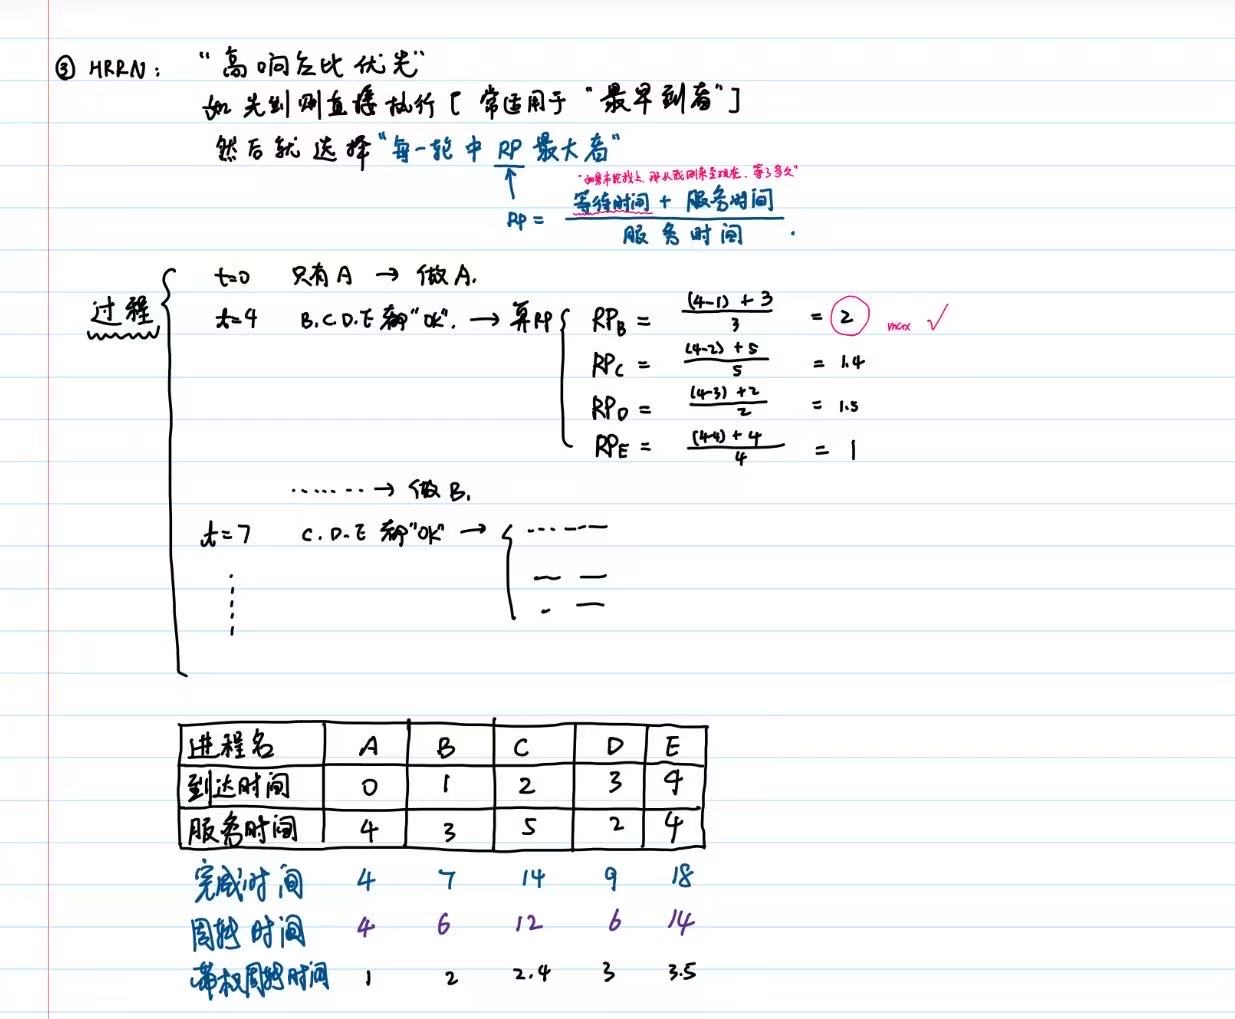 ③ HRRN： “高响应比优先”
如先到则直接执行 [ 常适用于 “最早到者” ]
然后就选择 “每一轮中 RP 最大者”
“如果本轮我上，那从我刚来至现在，等了多久”
RP = 等待时间 + 服务时间
服务时间 .
过程
t=0 只有A → 做A.
t=4 B.C.D.E 都 “OK”. → 算RP { RP_B = (4-1)+3 / 3 = 2 max ✓
RP_C = (4-2)+5 / 5 = 1.4
RP_D = (4-3)+2 / 2 = 1.5
RP_E = (4-4)+4 / 4 = 1
....... → 做B.
t=7 C.D.E 都 “OK” →
进程名 A B C D E
到达时间 0 1 2 3 4
服务时间 4 3 5 2 4
完成时间 4 7 14 9 18
周转时间 4 6 12 6 14
带权周转时间 1 2 2.4 3 3.5